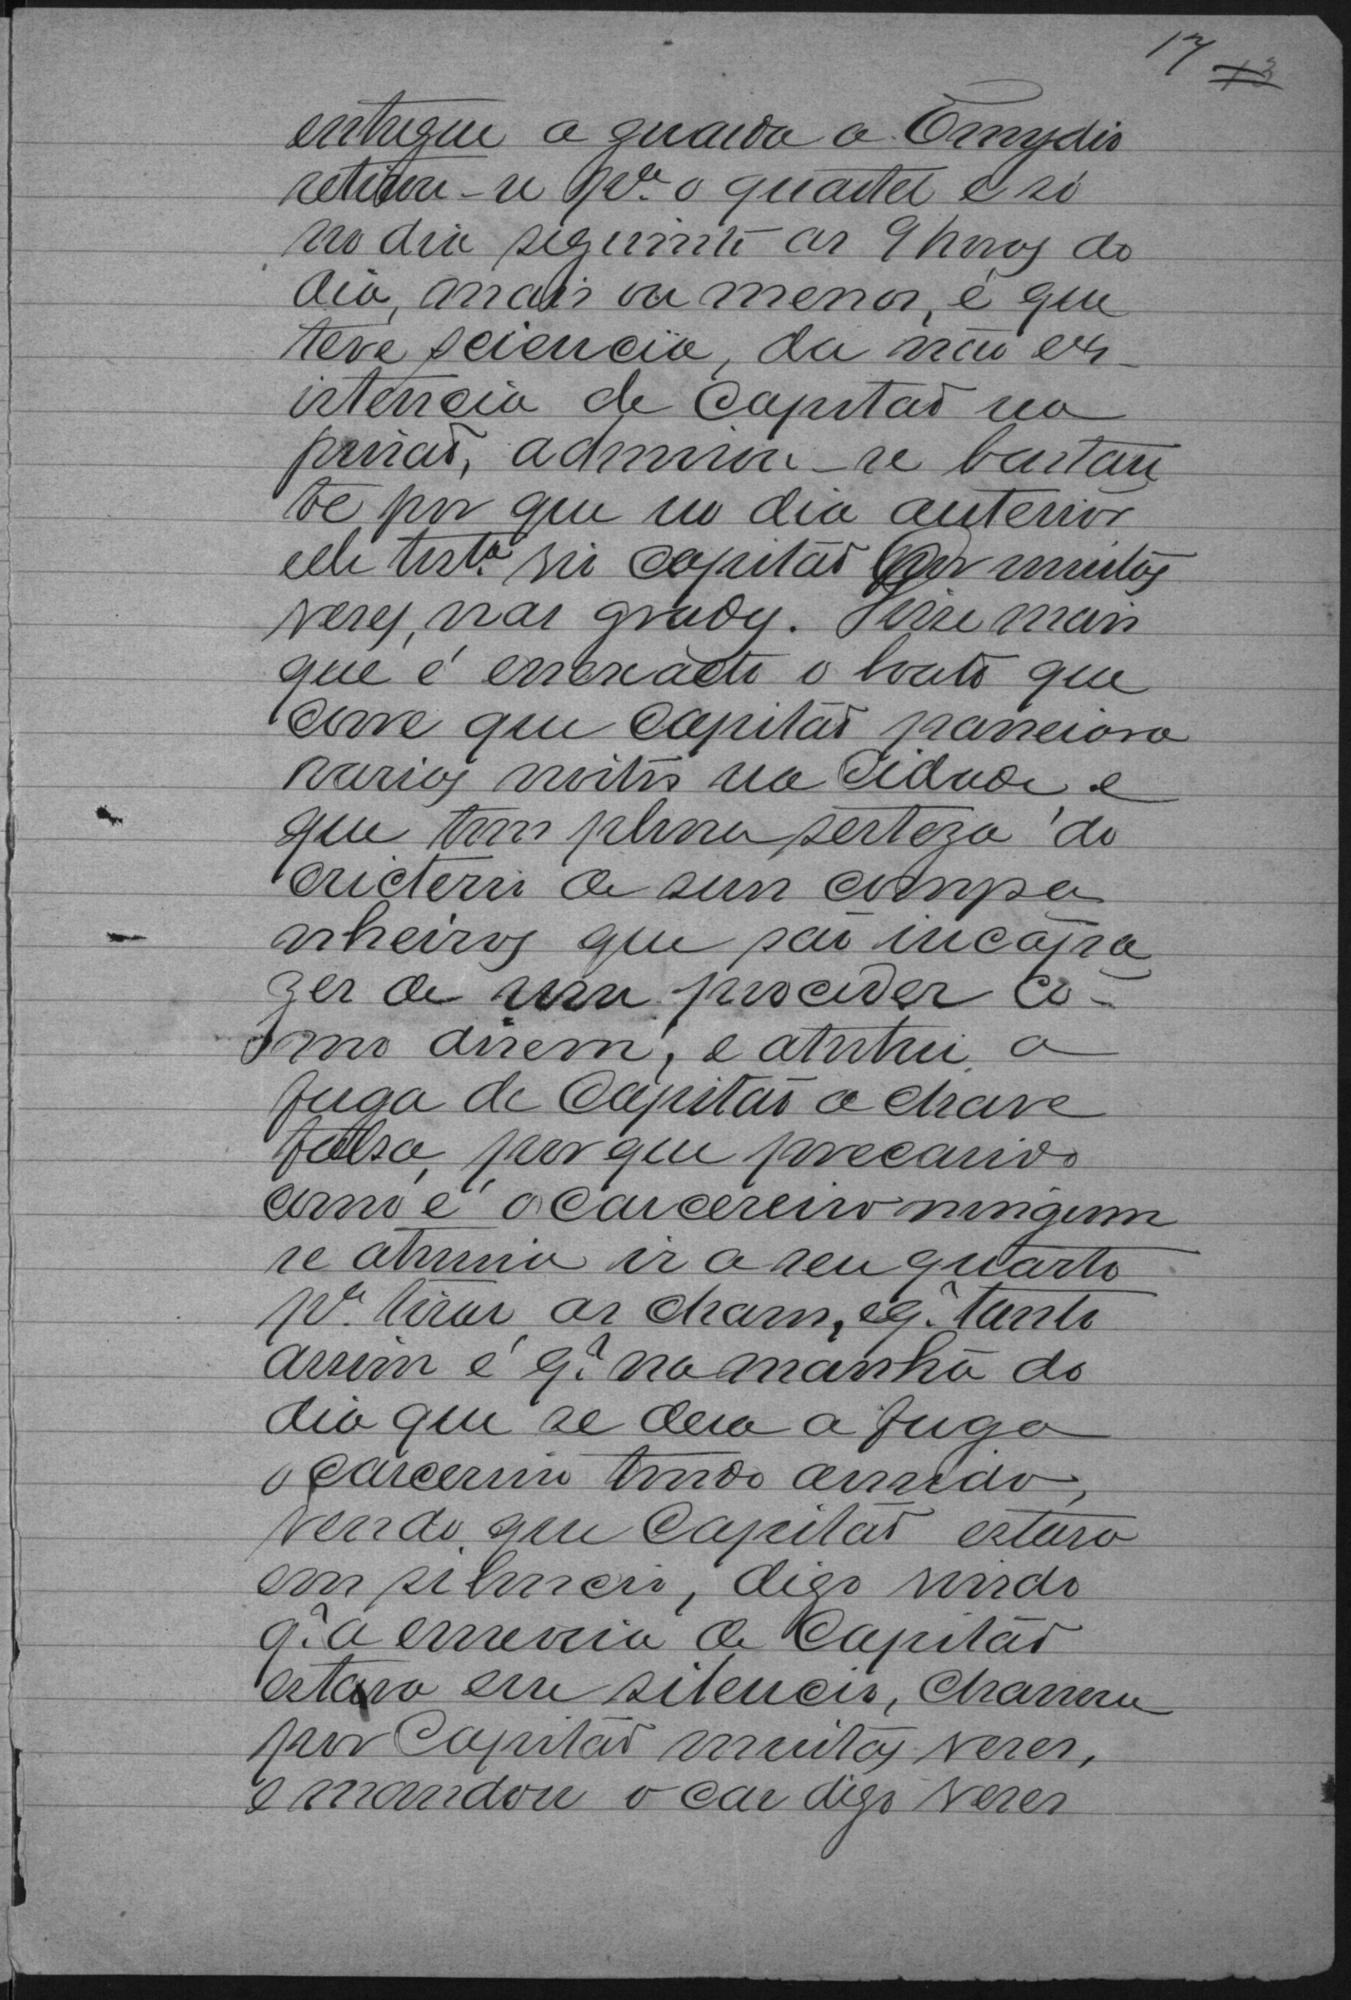 17 13
entregue a guarda a Emydio
retirou-se pª o quartel e só
no dia seguinte as 9 horas do
dia, mais ou menos, é que
teve sciencia, da não ex-
istencia de Capitão na
prisão, admirou-se bastan
te por que no dia anterior
elle testª vio Capitão por muitas
vezes, nas grades. Disse mais
que é enexacto o boato que
corre que Capitão passeiava
varias noites na Cidade e
que tem plena serteza do
cricterio de seus compa
nheiros que são incapa
zes de um proceder co-
mo dizem, e atribui a
fuga de Capitão a chave
falsa, por que precavido
como é o carcereiro ninguem
se atrevia ir a seu quarto
pª tirar as chaves, e q. tanto
assim é q. na manhã do
dia que se dera a fuga
o carcereiro tendo
vendo que Capitão estava
em silencio, digo vendo
q. a enxovia de Capitão
estava em silencio, chamou
por Capitão muitas vezes,
e mandou o car digo vezes